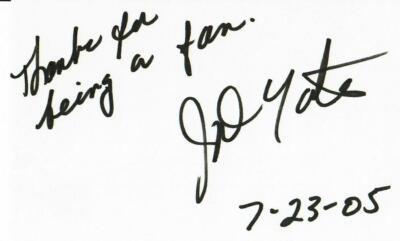 Thanks for
being a fan.
Yates
7-23-05